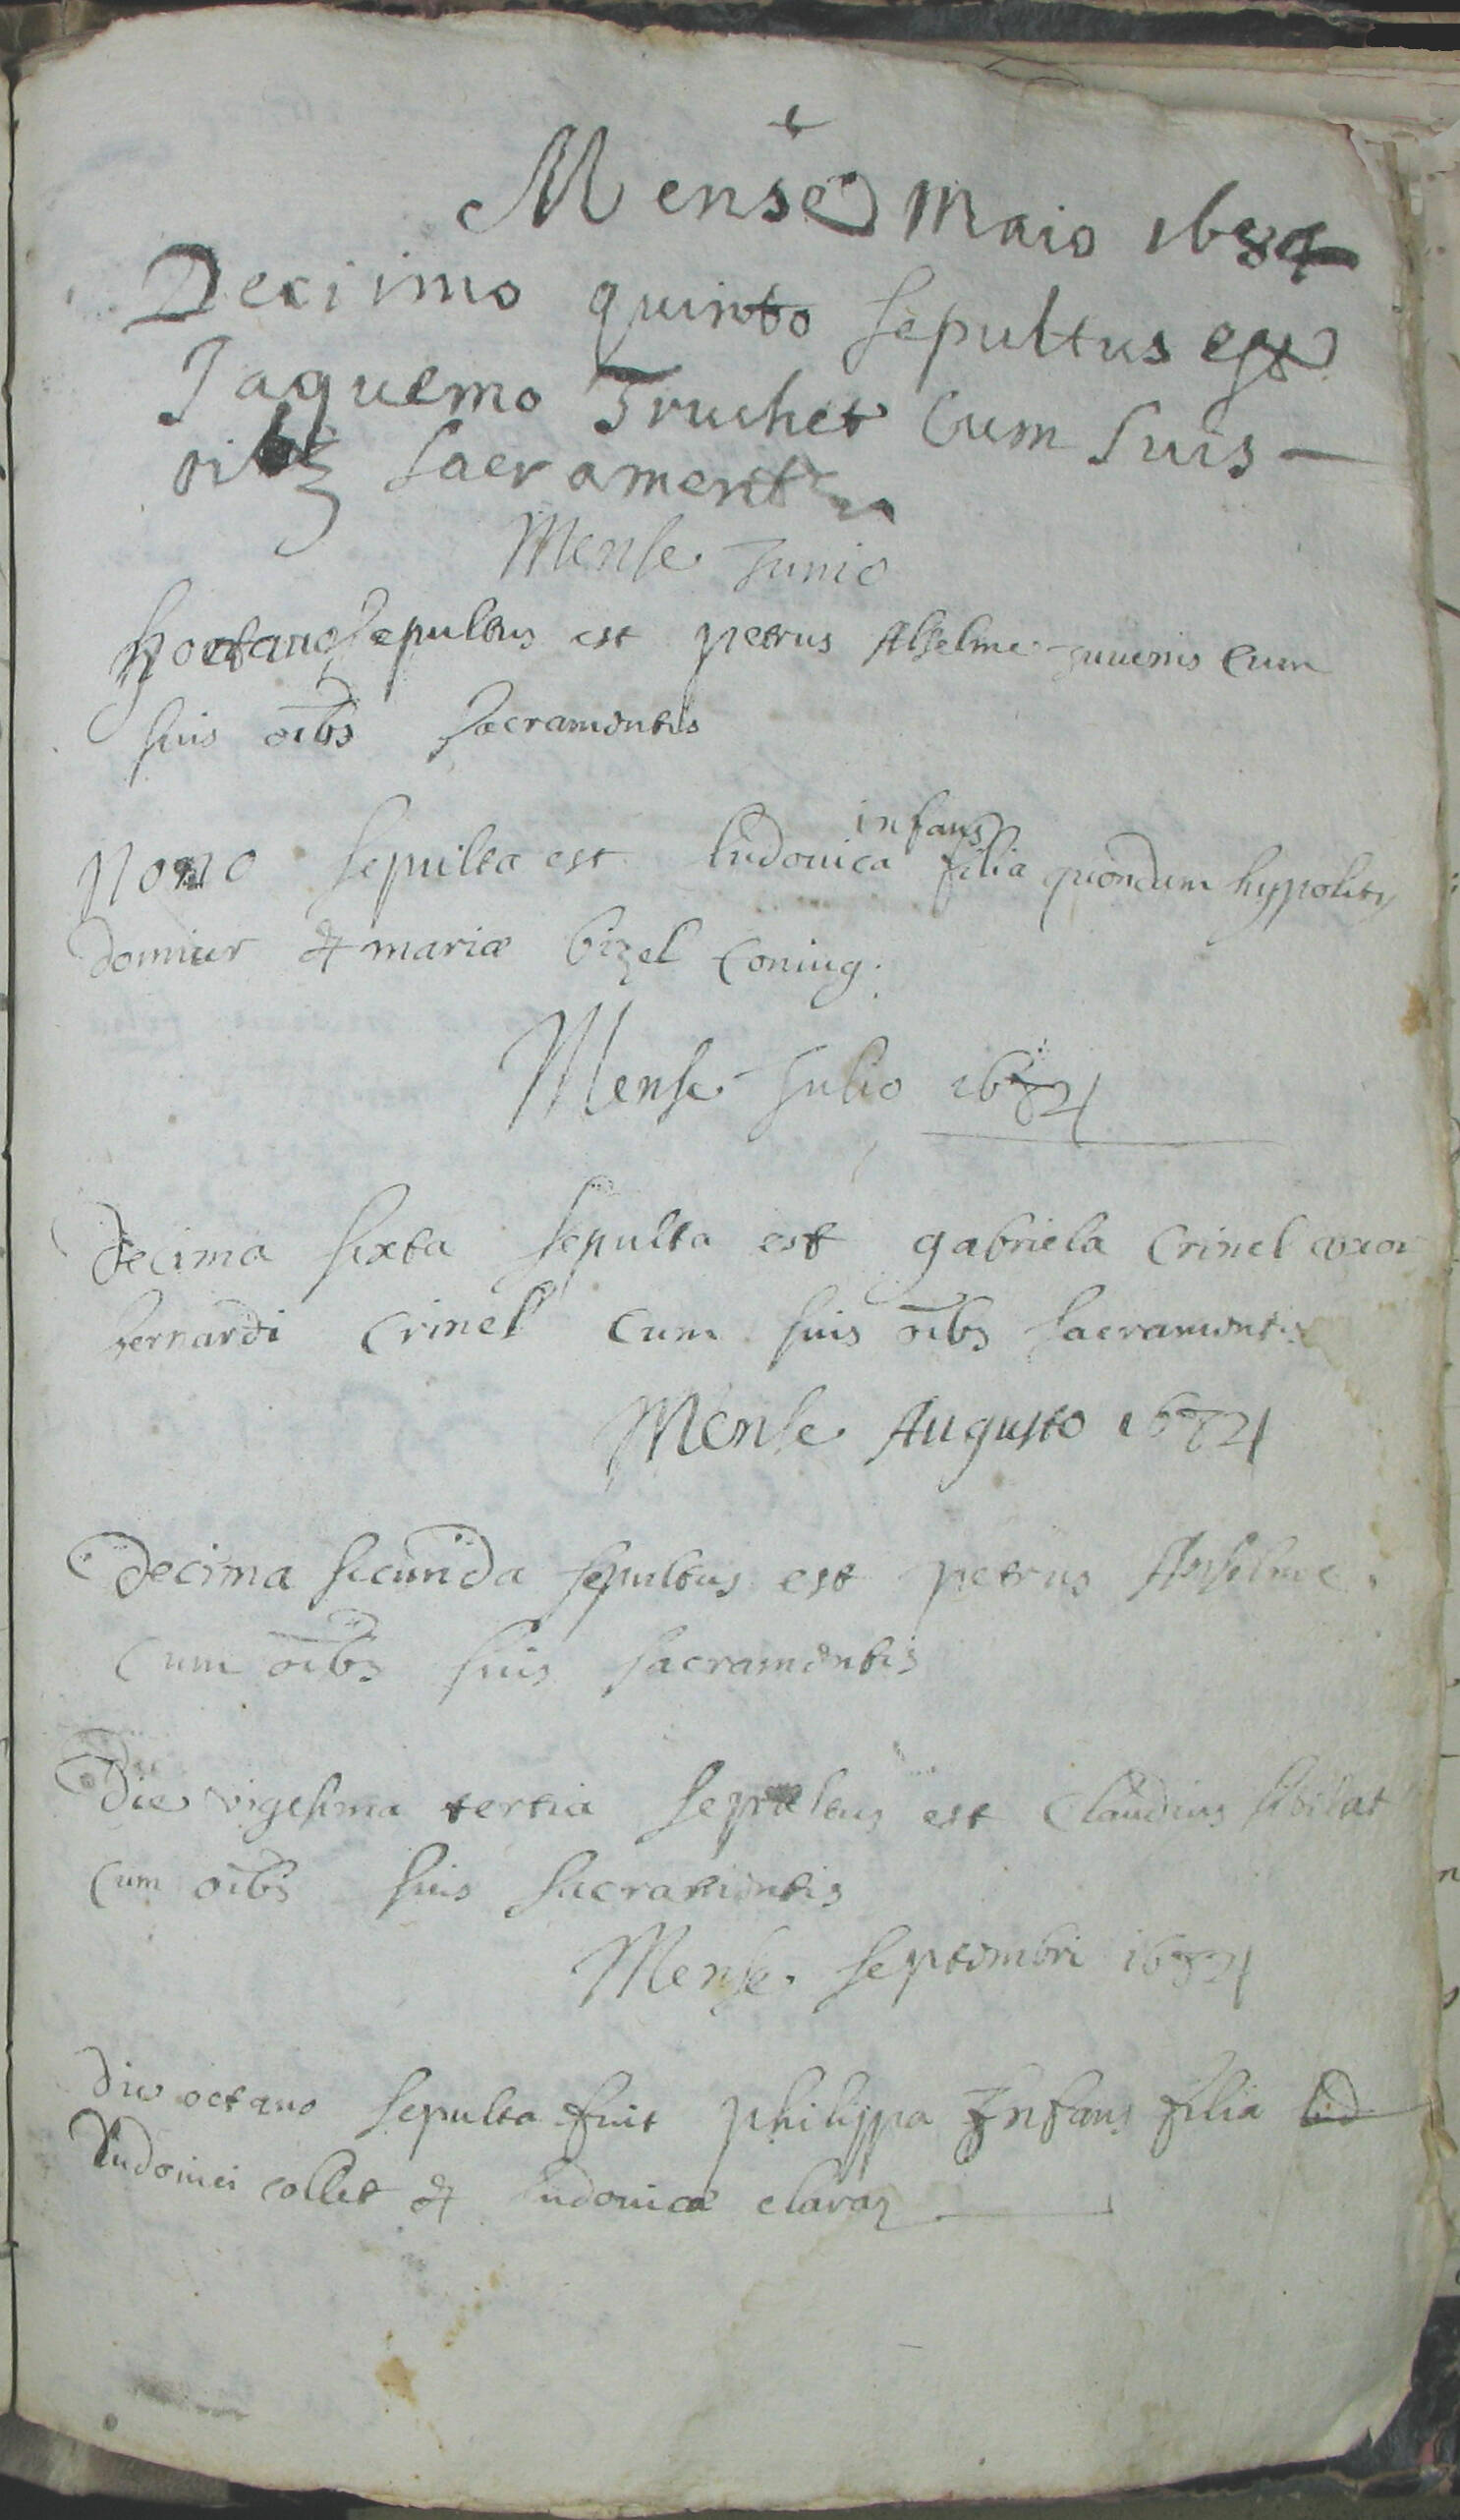 +
Mense Maio 1684
Deciimo quinto sepultus est
Jaquemo Truchet Cum Suis —
oibz Sacrament
Mense Junio
octavo sepultus est petrus Alselme Juvenis Cum
suis oībs Sacramentis
infans
Nono sepulta est ludovica filia quondam hyppolity
domier & mariæ bizel Coniug.
Mense Julio 1684
decima sixta sepulta est gabriela Crinel uxor
bernardi Crinel Cum suis oībs sacramentis
Mense Augusto 1684
decima secunda sepultus est petrus Anselme
Cum oībs suis sacramentis
Die vigesima tertia sepultus est Claudius
Cum oībs suis sacramentis
Mense septembri 1684
die octavo sepulta fuit philippa Infans filia lud
Ludovici collet & ludovicæ claraz